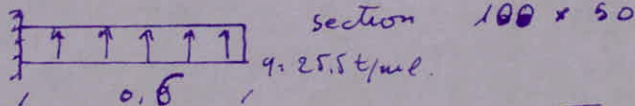 section 100 x 50
q= 25.5 t/ml.
0.6